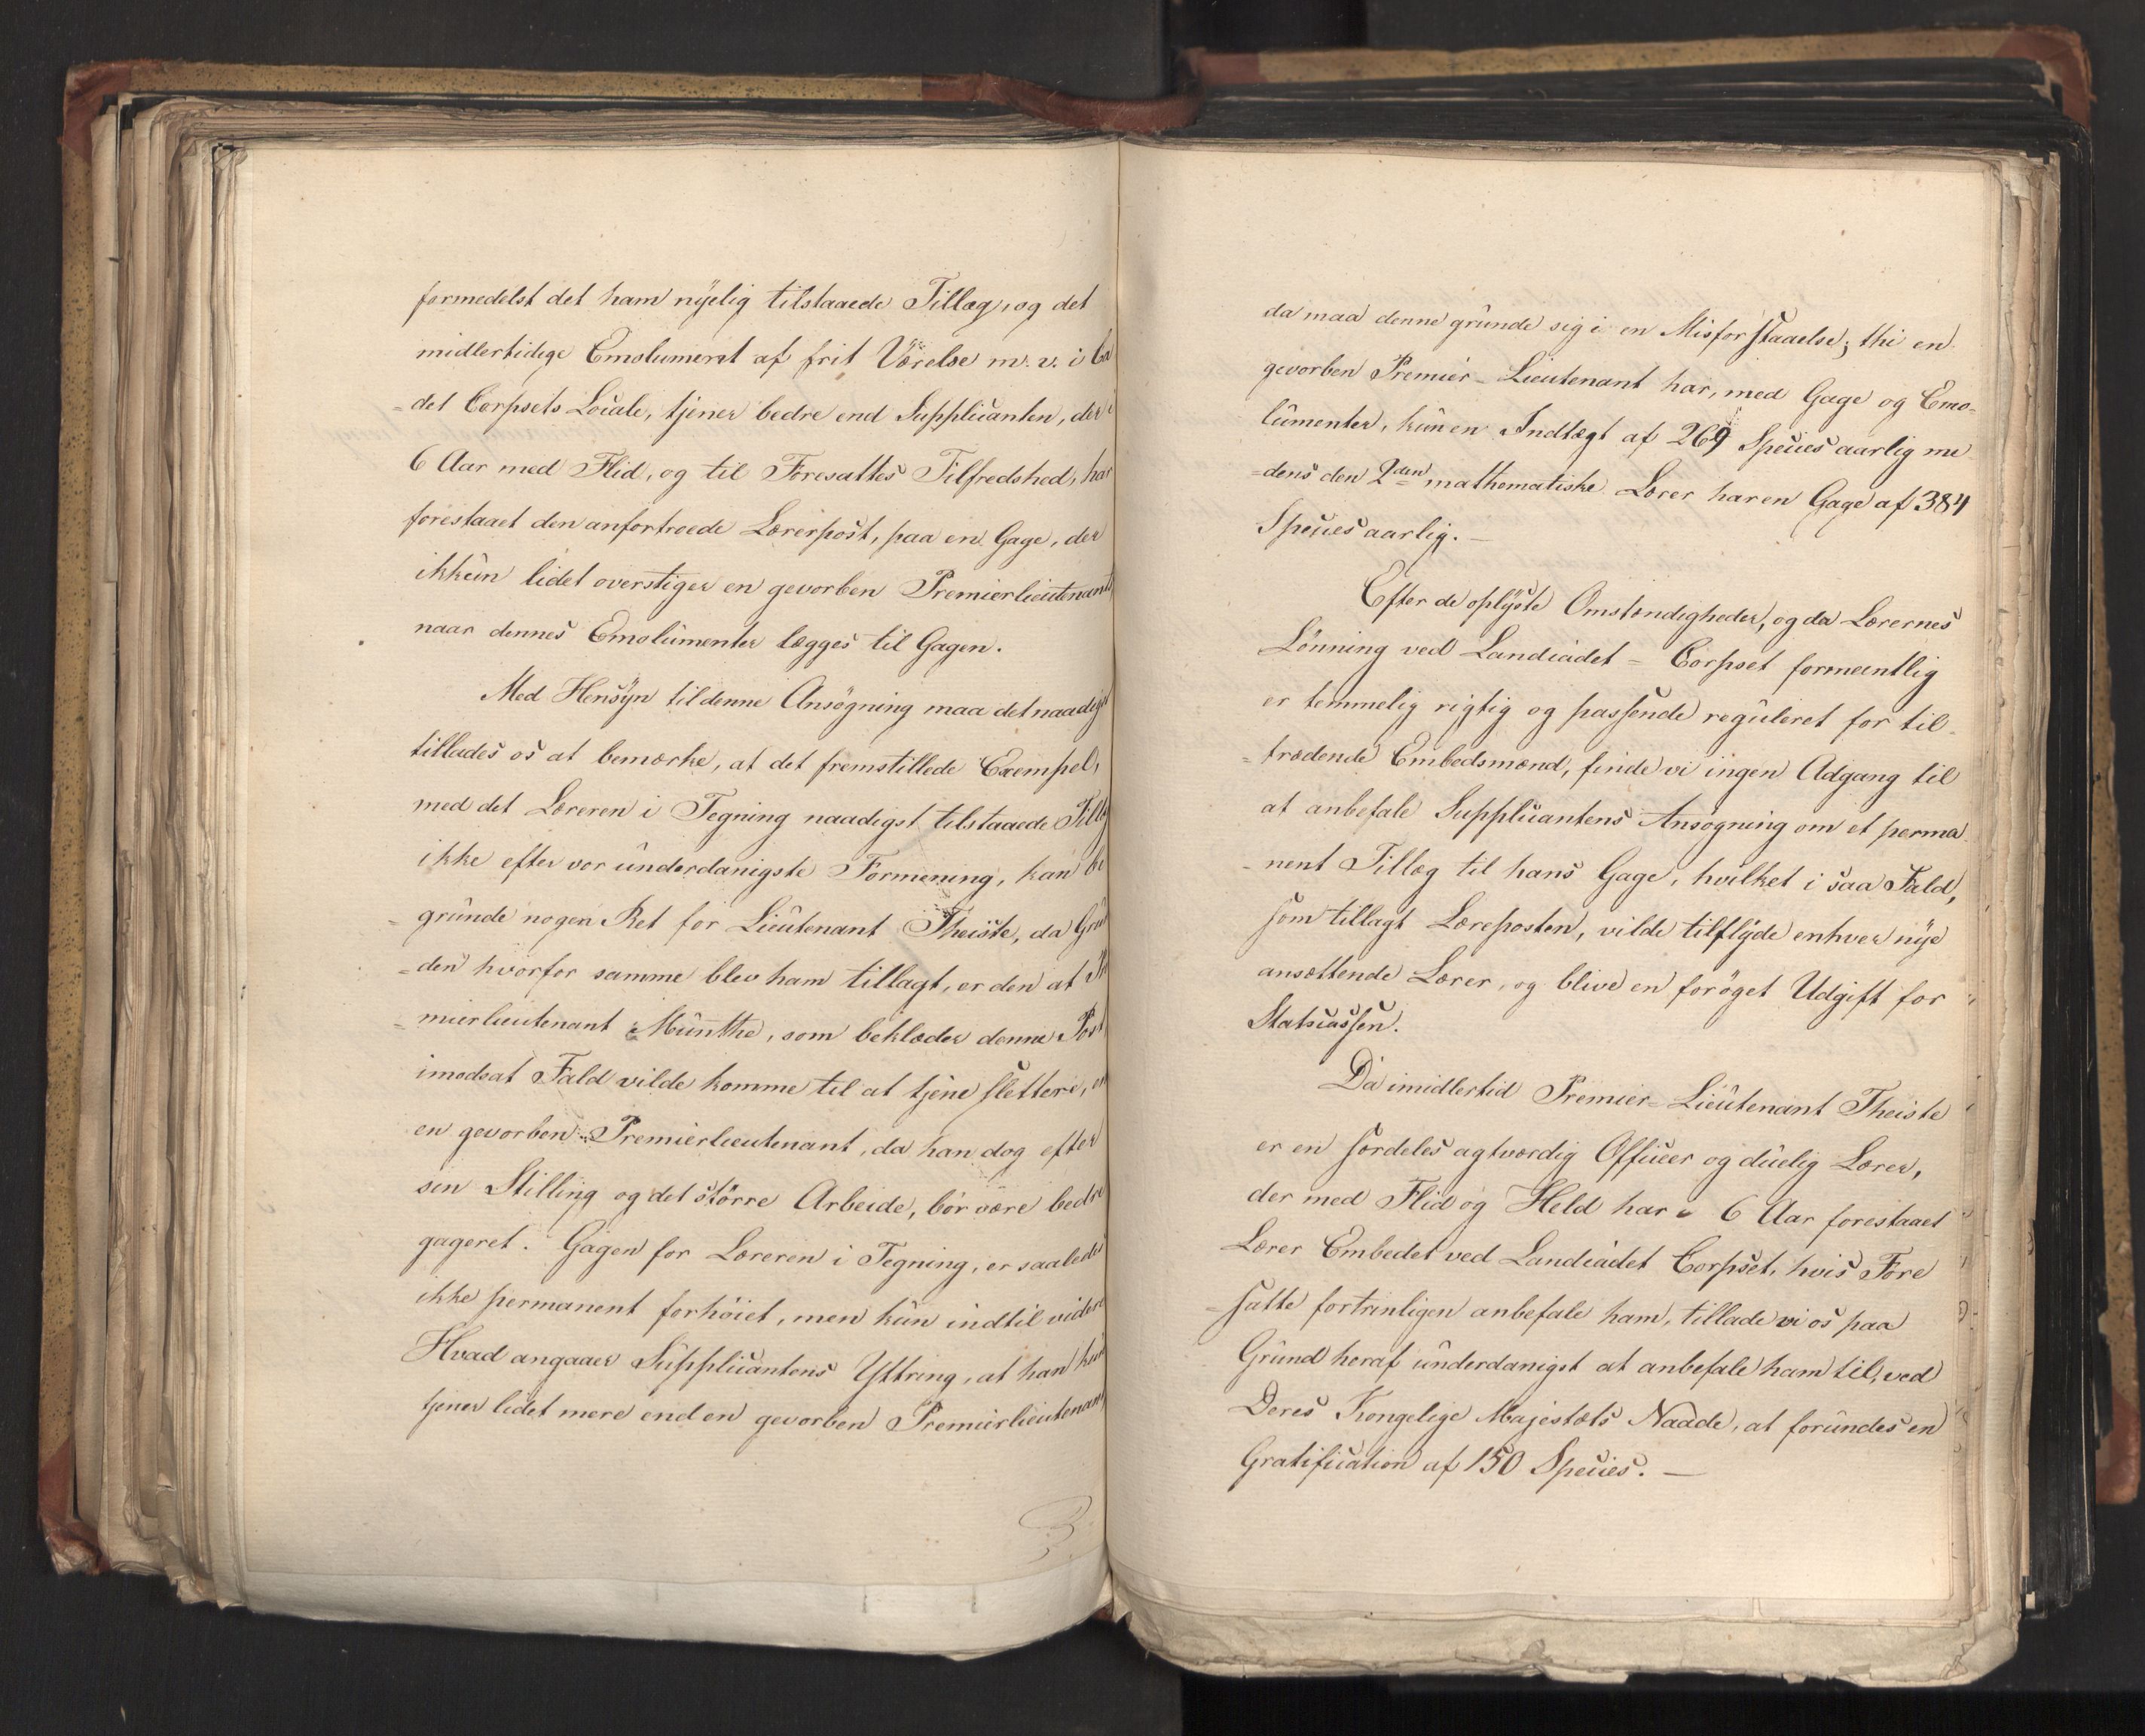 formedelst det ham nyelig tilstaaede Tillæg, og det
midlertidige Emolument af frit Værelse m. v. i Ca
=det Corpsets Locale, tjener bedre end Supplicanten, der i
6 Aar med Flid, og til Foresattes Tilfredshed, har
forestaaet den anfortroede Lærerpost, paa en Gage, der
ikkun lidet overstiger en gevorben Premierlieutenants
naar dennes Emolumenter lægges til Gagen.
Med Hensyn til denne Ansøgning maa det naadigst
tillades os at bemærke, at det fremstillede Exempel,
med det Læreren i Tegning naadigst tilstaaede Tillæg
ikke efter vor underdanigste Formening, kan be
=grunde nogen Ret for Lieutenant Theiste, da Grun
=den hvorfor samme blev ham tillagt, er den at Pre
=mierlieutenant Münthe, som beklæder denne Post
imodsat Fald vilde komme til at tjene slettere, en
en gevorben Premierlieutenant, da han dog efter
sin Stilling og det større Arbeide, bör være bedre
gageret. Gagen for Læreren i Tegning, er saaledes
ikke permanent forhöiet, men kun indtil videre
Hvad angaaer Supplicantens Yttring, at han kun
tjener lidet mere end en gevorben Premierlieutenant
da maa denne grunde sig i en Misforstaaelse; thi en
gevorben Premier-Lieutenant har, med Gage og Emo-
lumenter, kun en Indtægt af 269 Species aarlig me
=dens den 2den mathematiske Lærer har en Gage af 384
Species aarlig. —
Efter de oplyste Omstændigheder, og da Lærernes
Lönning ved Landcadet=Corpset formeentlig
er temmelig rigtig og passende reguleret for til-
=trædende Embedsmænd, finde vi ingen Adgang til
at anbefale Supplicantens Ansøgning om et perma
-nent Tillæg til hans Gage, hvilket i saa Fald,
som tillagt Læreposten, vilde tilflyde enhver nye
ansættende Lærer, og blive en foröget Udgift for
Statscassen.
Da imidlertid Premier-Lieutenant Theiste
er en særdeles agtværdig Officer og duelig Lærer,
der med Flid og Held har i 6 Aar forestaaet
Lærer Embedet ved Landcadet Corpset, hvis Fore
=satte fortrinligen anbefale ham, tillade vi os paa
Grund heraf underdanigst at anbefale ham til, ved
Deres Kongelige Majestæts Naade, at forundes en
Gratification af 150 Species. —